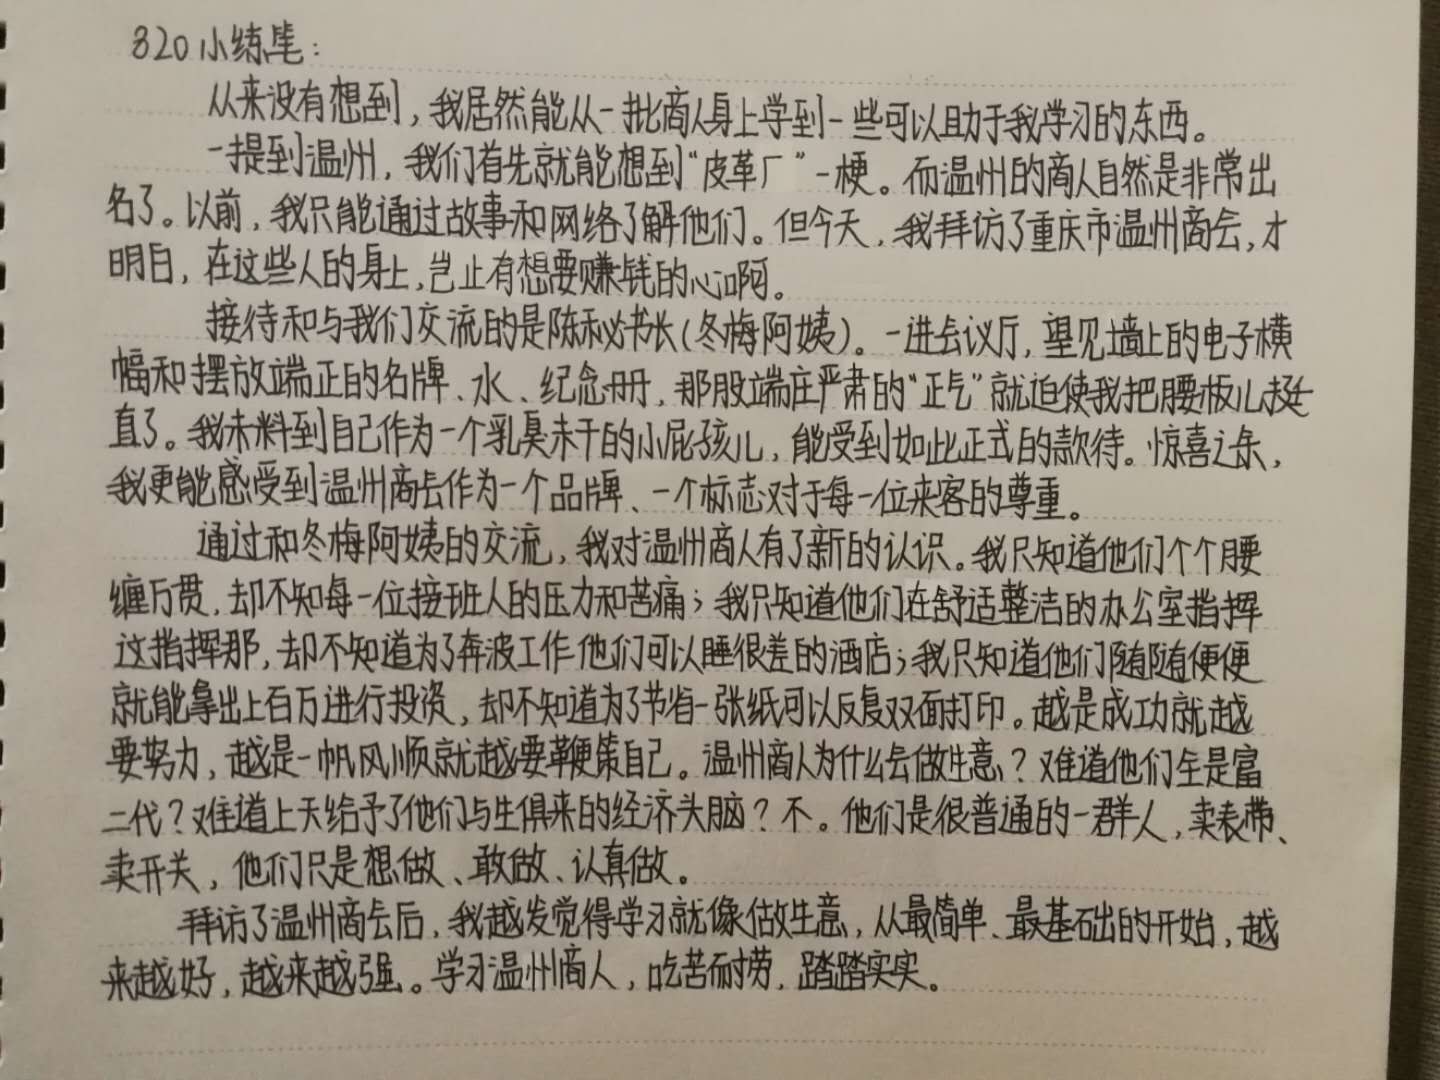 820小练笔:
从来没有想到,我居然能从一批商人身上学到一些可以助于我学习的东西。
一提到温州,我们首先就能想到“皮革厂”一梗。而温州的商人自然是非常出
名了。以前,我只能通过故事和网络了解他们。但今天,我拜访了重庆市温州商会,才
明白,在这些人的身上,岂止有想要赚钱的心啊。
接待和与我们交流的是陈秘书长(冬梅阿姨)。一进会议厅,望见墙上的电子横
幅和摆放端正的名牌、水、纪念册,那股端庄严肃的“正气”就迫使我把腰板儿挺
直了。我未料到自己作为一个乳臭未干的小屁孩儿,能受到如此正式的款待。惊喜之余,
我更能感受到温州商会作为一个品牌、一个标志对于每一位来客的尊重。
通过和冬梅阿姨的交流,我对温州商人有了新的认识。我只知道他们个个腰
缠万贯,却不知每一位接班人的压力和苦痛;我只知道他们在舒适整洁的办公室指挥
这指挥那,却不知道为了奔波工作他们可以睡很差的酒店;我只知道他们随随便便
就能拿出上百万进行投资,却不知道为了节省一张纸可以反复双面打印。越是成功就越
要努力,越是一帆风顺就越要鞭策自己。温州商人为什么会做生意?难道他们全是富
二代?难道上天给予了他们与生俱来的经济头脑?不。他们是很普通的一群人,卖表带、
卖开关,他们只是想做、敢做、认真做。
拜访了温州商会后,我越发觉得学习就像做生意,从最简单、最基础的开始,越
来越好,越来越强。学习温州商人,吃苦耐劳,踏踏实实。